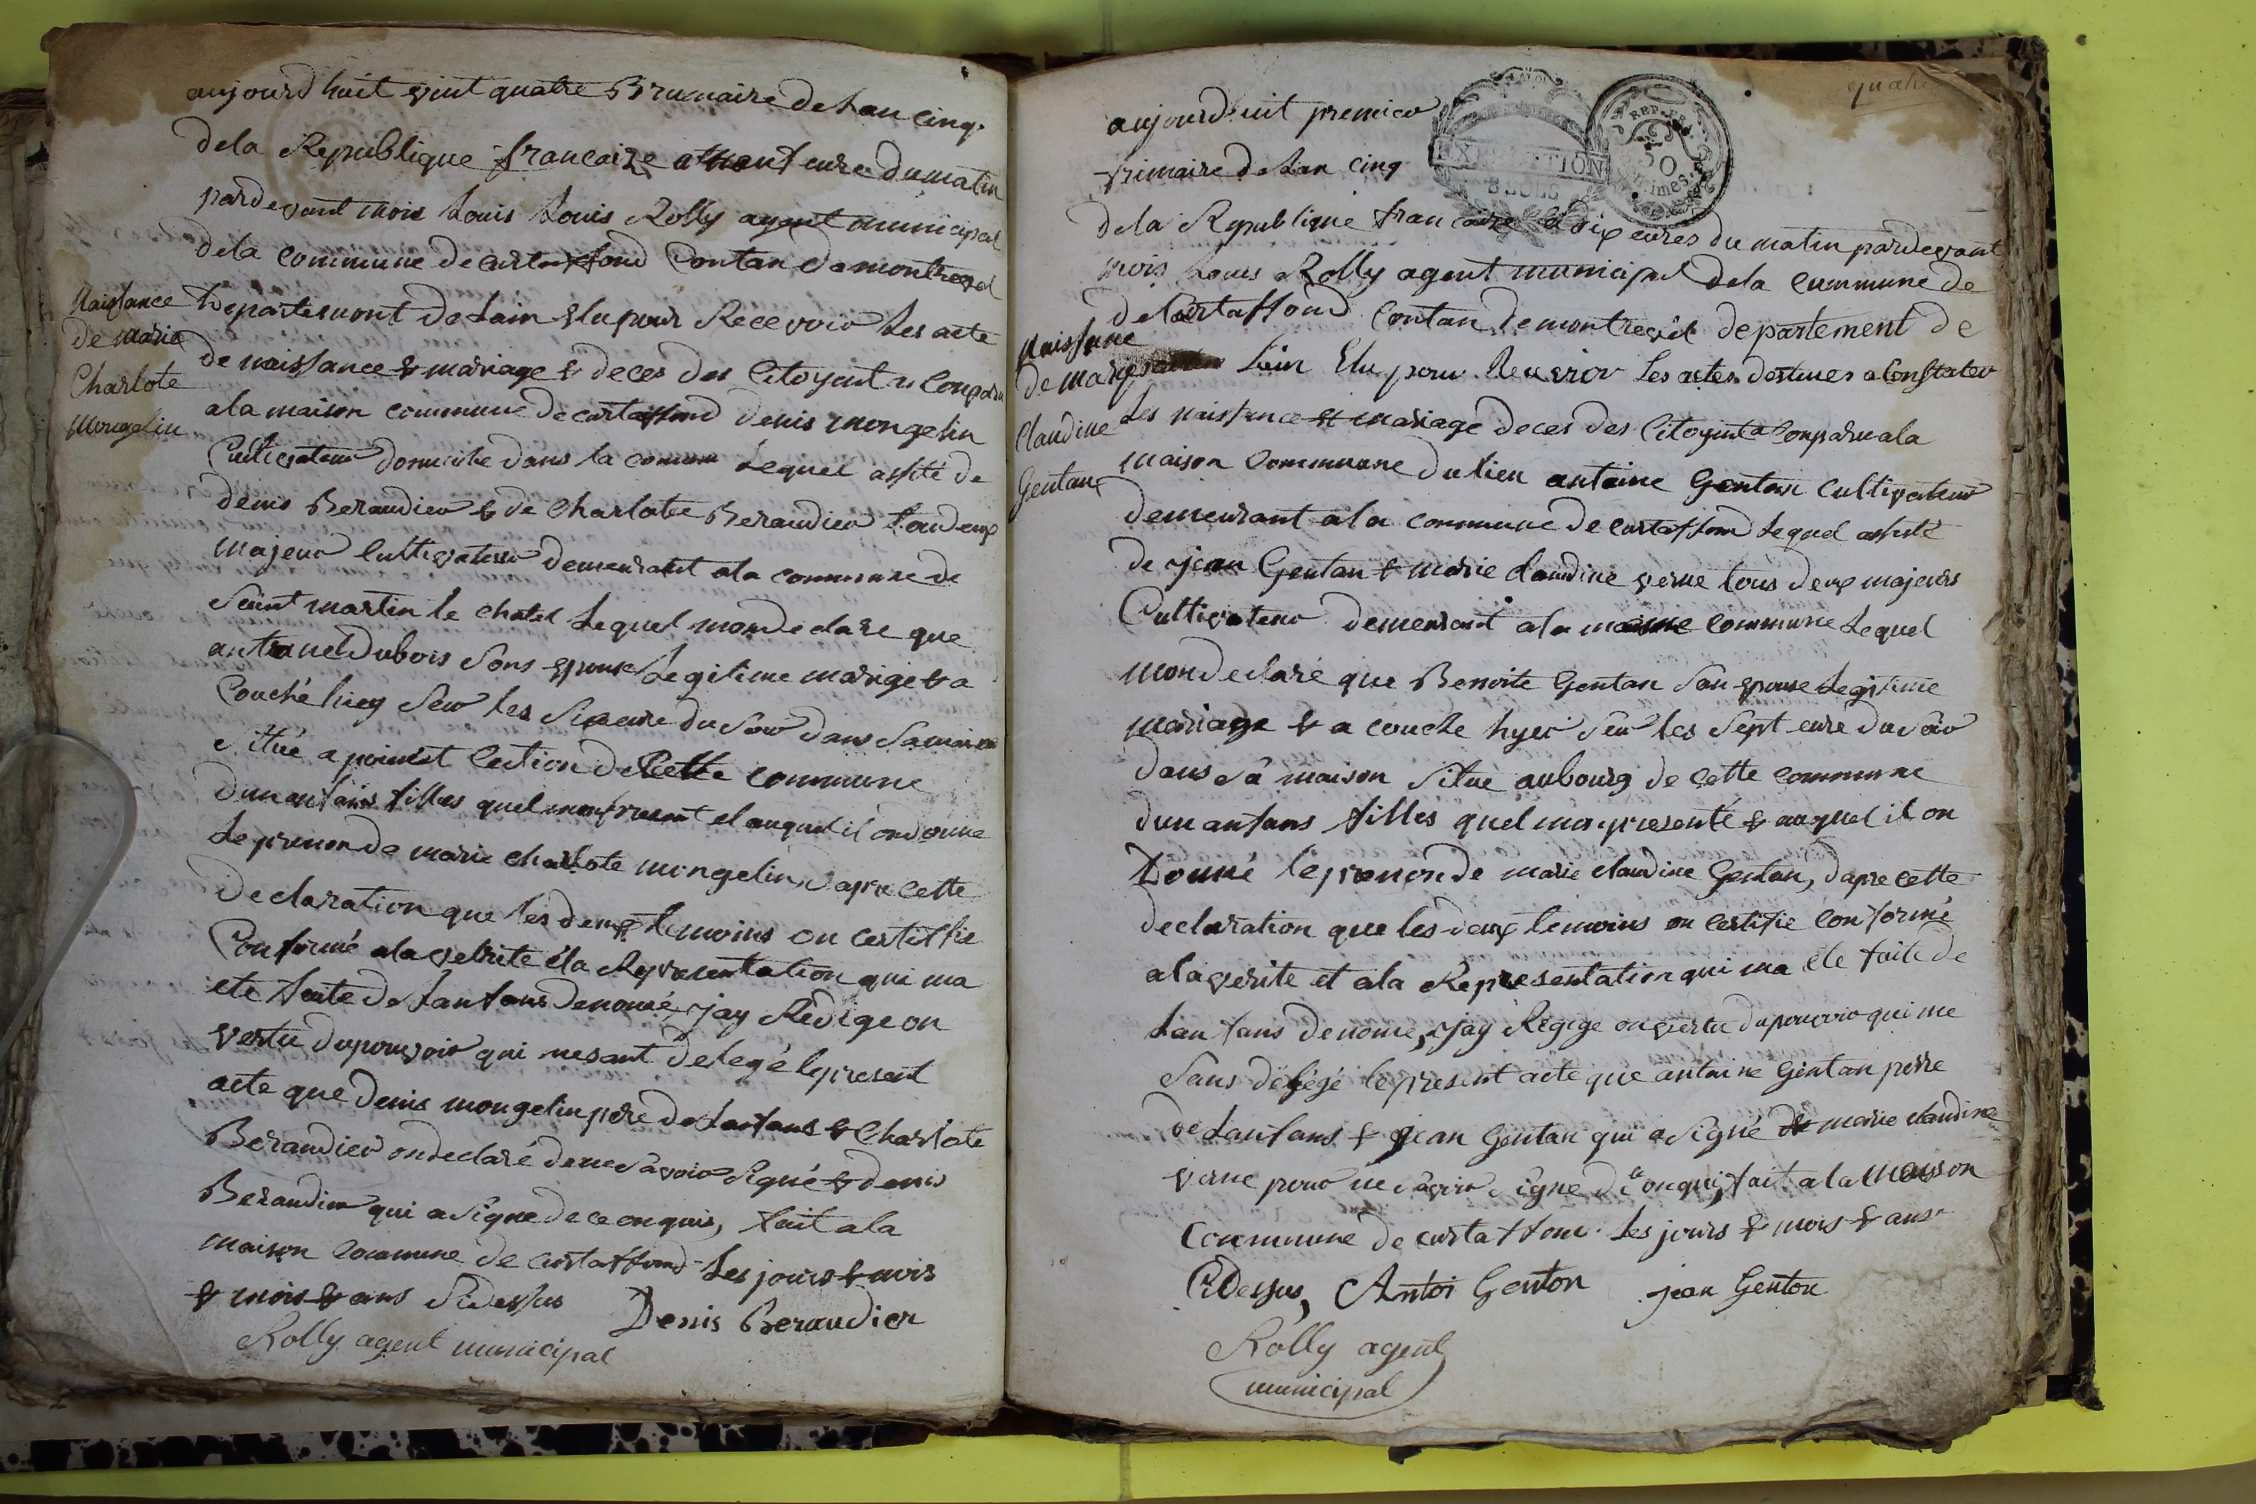 aujourd huit vint quatre Brumaire de Lan cinq.
de la Republique francaize a heure du matin
pardevant mois Louis Louis Rolly agent municipal
dela commune de curtaffond Contan de montrevel
Departement de Lain Elu pour Recevoir Les acte
de naissance & mariage & deces des Citoyent Conparu
a la maison commune de curtaffond denis mongelin
Cultivateur domicilie dans la comune Lequel assité de
denis Beraudier & de Charlotte Beraudier Tous deux
majeur Cultivateur demeurant ala commune de
Saint martin le chatel Lequel mon declare que
Dubois Sons epouse Legitime mariage & a
Couché hiey Seur les Sixeure du Soir dans Sa maison
Situé a poinset Cection de Cette commune
dun anfans filles quel et auquel il on donne
Le prenon de marie charlote mongelin, dapre cette
declaration que les deux temoins on certiffie
Conformé ala verite & la Representation qui ma
ete faite de Lanfans denomé, jay Redige on
vertu du pouvoir qui mesant delegé le present
acte que denis mongelin pere de Lanfans & Charlote
Beraudier on declaré de ne Savoir Signé & denis
Beraudier qui a Signe de ce on quis, fait a la
maison commune de curtaffond Les jours & mois
& mois & ans Sidessus
Denis Beraudier
Rolly agent municipal
Naissance
de marie
Charlote
Mongelin
quatre
aujourd'uit premier
frimaire de Lan cinq
REP. FR.
50
de la Republique francaize a Dix eures du matin pardevant
mois Louis Rolly agent municipal dela commune de
de Curtaffond Contan de montrevel departement de
Lain Elu pour Recevoir Les actes destines a Constater
Les naissance & mariage deces des Citoyent a Conparu ala
maison Commune du lieu antoine Gentan cultivateur
demeurant ala commune de curtaffond Lequel assisté
de jean Gentan & marie claudine verne tous deux majeurs
Cultivateur demeurant ala maisme commune Lequel
mon declaré que Benoite Gentan Son epouse Legitime
mariage & a couche hyer Seur les Sept eure du Soir
dans Sa maison Situé au bourg de cette commune
dun anfans filles quel ma presenté & auquel il on
Donné le prenon de marie claudine Gentan, dapre cette
declaration que les deux temoins on certifie conformé
a la verite et ala Representation qui ma ete faite de
Lanfans denomé, jay Regige on vertu du pouvoir qui me
Sans délégé le present acte que antoine Gentan pere
de Lanfans & jean Gentan qui a Signé & marie claudine
verne pour ne Savoir Signe de ce on qui, fait a la maison
Commune de curtaffond Les jours & mois & ans
Cidessus, Antoi Genton jean Genton
Rolly agent
municipal
Naissance
de marie
Claudine
Gentan